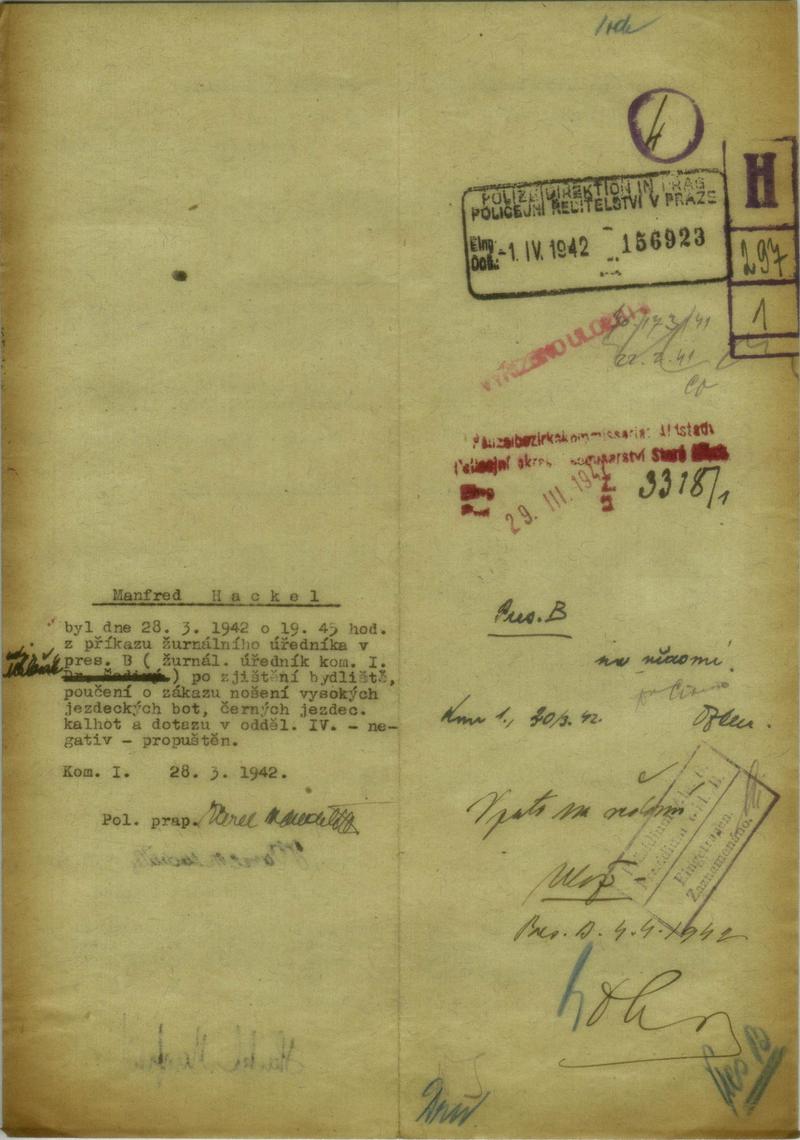 4
POLIZEIDIREKTION IN PRAG
POLICEJNÍ ŘEDITELSTVÍ V PRAZE
Eing.
Doš.: -1. IV. 1942 156923
H
297
1
VYŘÍZENO ULOŽIT
22. 2. 41
Polizeibezirkskommissariat Altstadt
Policejní okres. komisařství Staré
29. III. 194
3318/1
Manfred H a c k e l
byl dne 28. 3. 1942 o 19. 45 hod.
z příkazu žurnálního úředníka v
pres. B ( žurnál. úředník kom. I.
) po zjištění bydliště,
poučení o zákazu nošení vysokých
jezdeckých bot, černých jezdec.
kalhot a dotazu v odděl. IV. - ne-
gativ - propuštěn.
Kom. I. 28. 3. 1942.
Pol. prap. Karel
Pres. B
na vědomí.
Kom 1., 30/3. 42.
Zpět na vědomí
Eingetragen.
Zaznamenáno.
Ulož -
Pres. B. 4. 4. 1942
Pres B